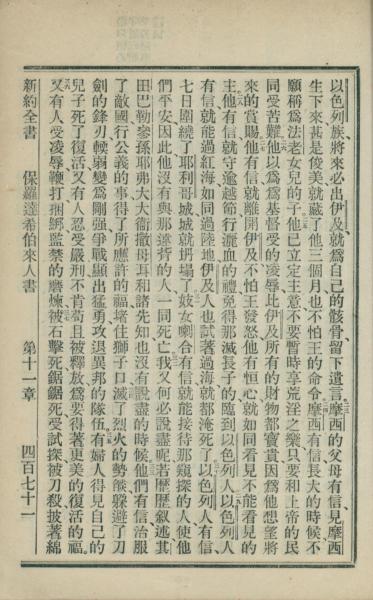 以色列族將來必出伊及就爲自己的骸骨留下遺言摩西的父母有信見摩西
生下來甚是俊美就藏了他三個月也不怕王的命令摩西有信長大的時候不
願稱爲法老女兒的子他已立定主意不要暫時享荒淫之樂只要和上帝的民
同受苦難他以爲爲基督受的凌辱比伊及所有的財物都寶貴因爲他想望將
來的賞賜他有信就離開伊及不怕王發怒他有恒心就如同看見不能看見的
主他有信就守逾越節行灑血的禮免得那滅長子的臨到以色列人以色列人
有信就能過紅海如同過陸地伊及人也試著過海就都淹死了以色列人有信
七日圍繞了耶利哥城城就坍塌了妓女喇合有信就能接待那窺探的人使他
們平安因此他沒有與那違背的人一同死亡我又何必說盡呢若歷歷敘述其
田巴勒參孫耶弗大大衛撒母耳和諸先知也沒有說盡的時候他們有信治服
了敵國行公義的事得了所應許的福堵住獅子口滅了烈火的勢燄躱避了刀
劍的鋒刃輭弱變爲剛强爭戰顯出猛勇攻退異邦的隊伍有婦人得見自己的
兒子死了復活又有人忍受嚴刑不肯苟且被釋放爲要得著更美的復活的福
又有人受凌辱鞭打捆綁監禁的磨煉被石擊死鋸鋸死受試探被刀殺披著綿
新約全書 保羅達希伯來人書 第十一章 四百七十一